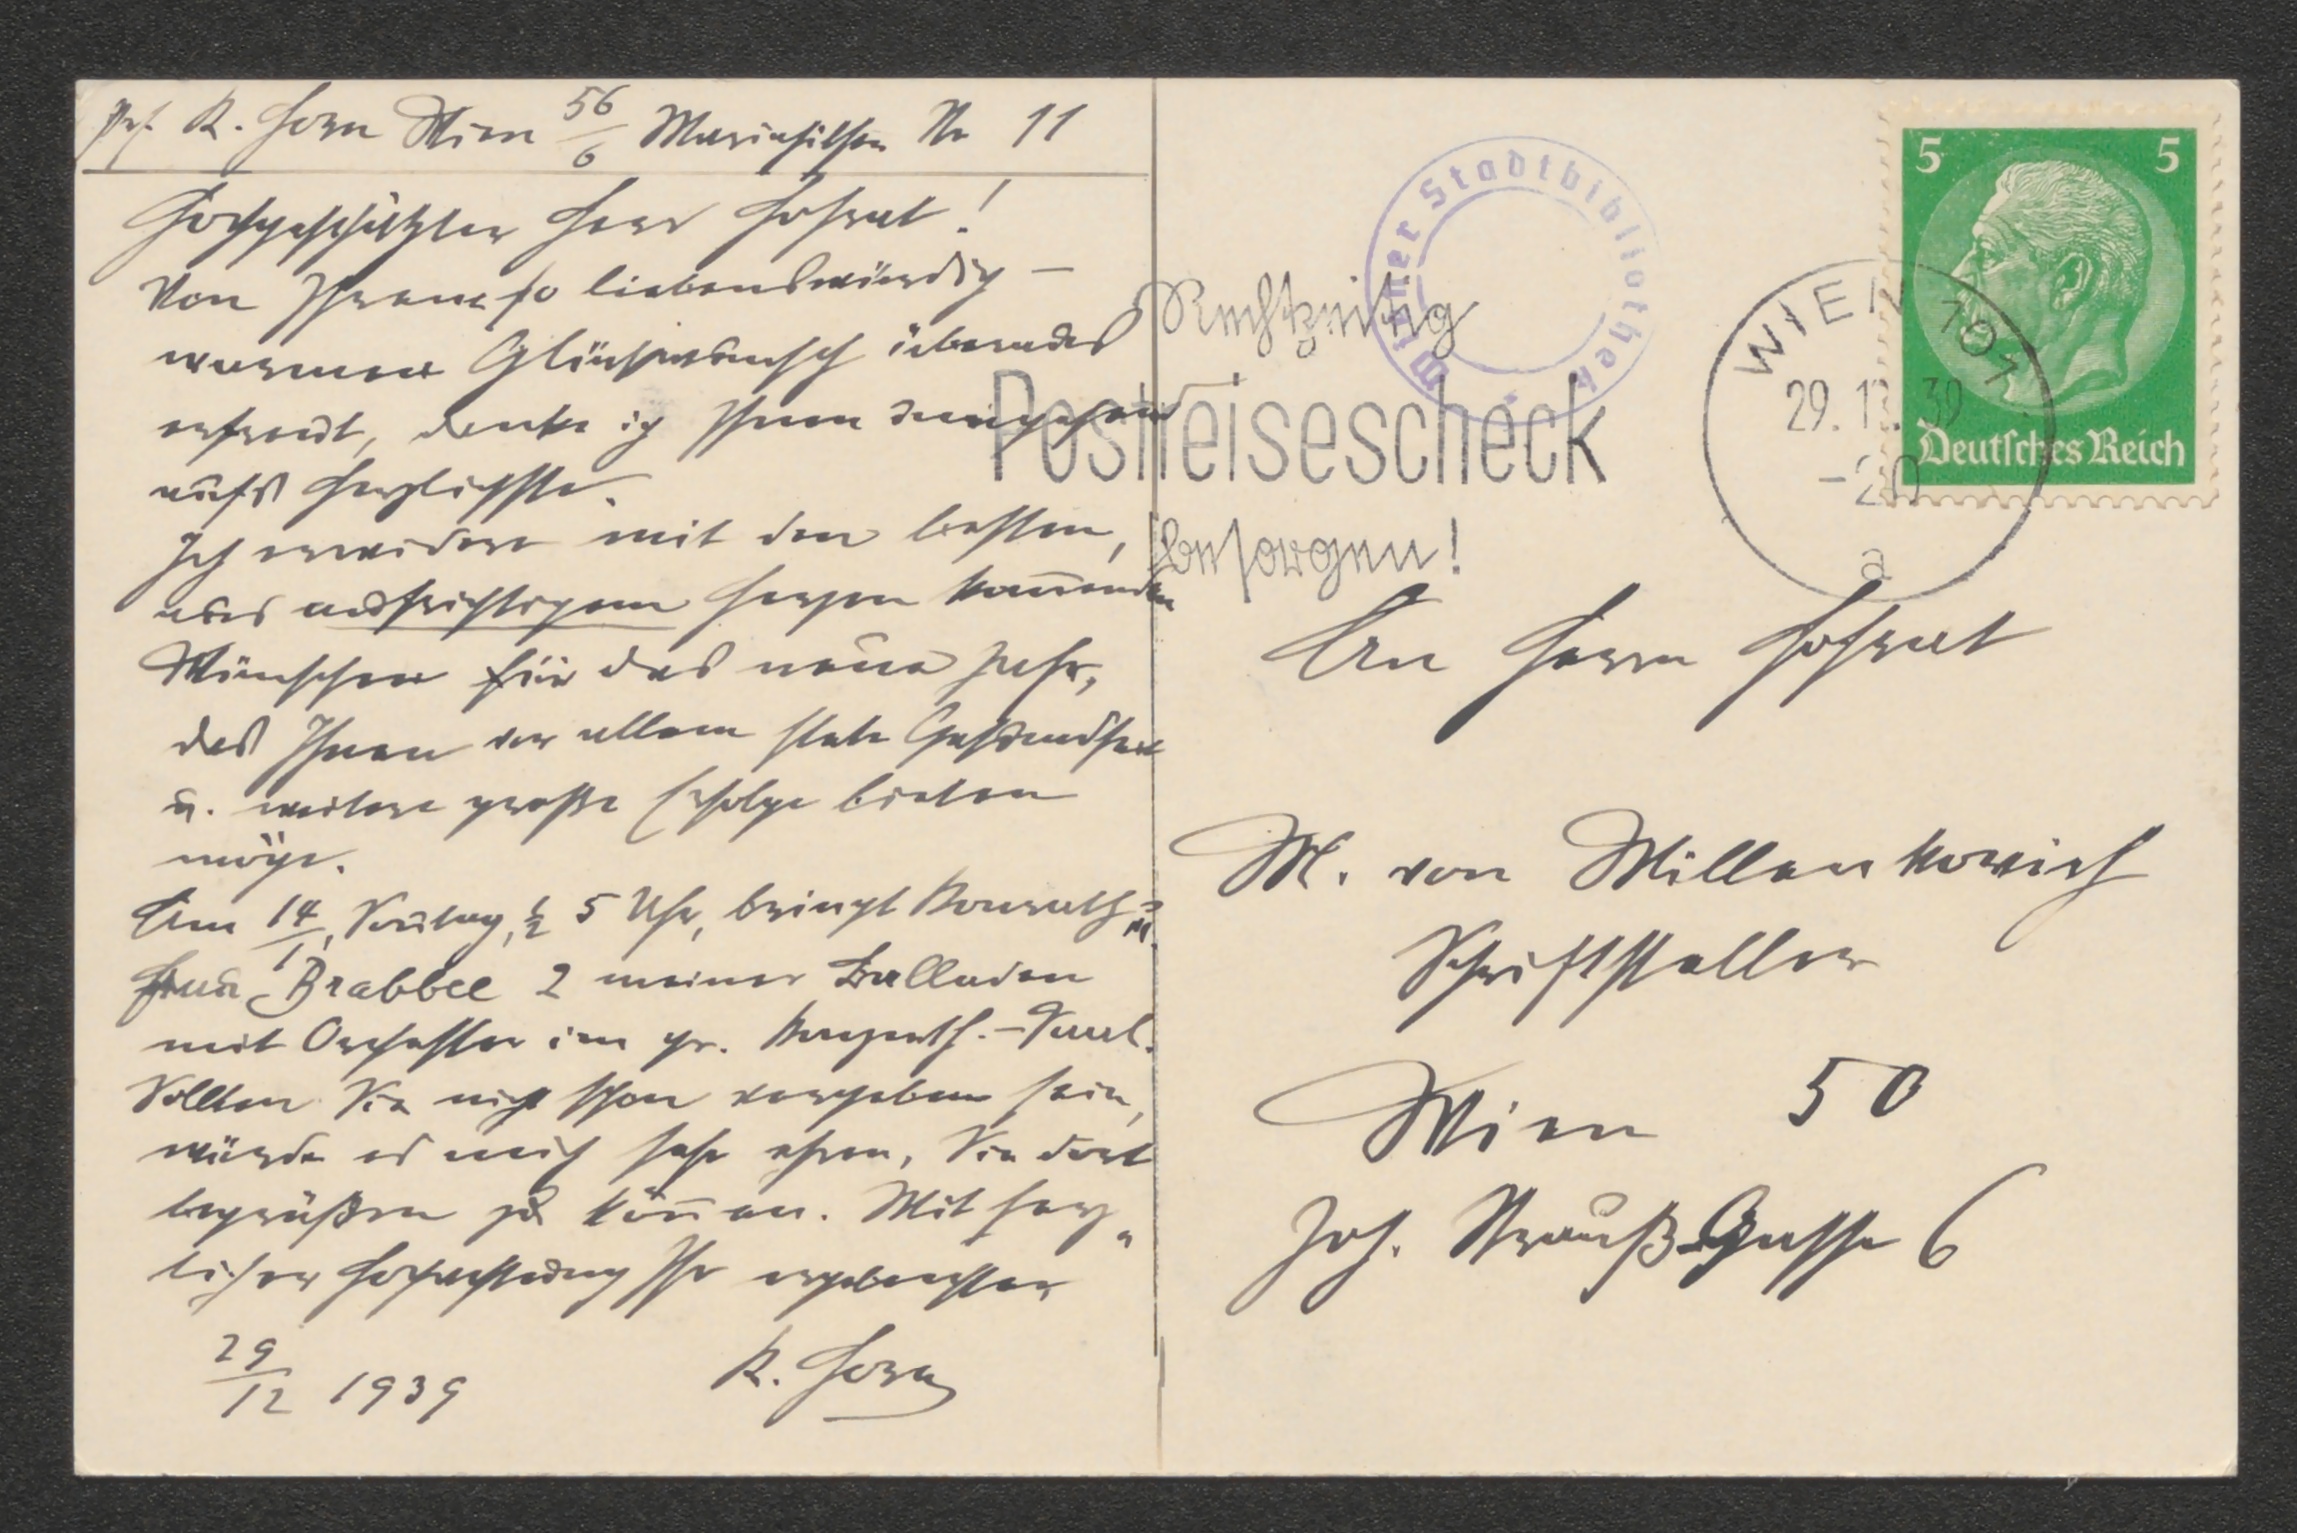 Prof. K. Horn Wien 56/6 Mariahilfer Nr 11
Hochgeschätzter Herr Hofrat!
Von Ihrem so liebenswürdig-
warmen Glückwunsch überaus
erfreut, danke ich Ihnen
aufs herzlichste.
Ich erwidere mit den besten,
aus aufrichtigem Herzen kom̅enden
Wünschen für das neue Jahr,
das Ihnen vor allem stete Gesundheit
u. weitere große Erfolge bieten
möge.
Am 14/1, Sonntag, ½ 5 Uhr, bringt
Frau Brabbee 2 meiner Balladen
mit Orchester im gr. Konzerth.-Saal.
Sollten Sie nicht schon vergeben sein,
würde es mich sehr ehren, Sie dort
begrüßen zu kön̅en. Mit herz-
licher Hochachtung Ihr ergebenster
29/12 1939 K. Horn
Wiener Stadtbibliothek
Rechtzeitig
Postreisescheck
besorgen!
WIEN 101
29.12.39
-20
a
5 5
Deutsches Reich
An Herrn Hofrat
M. von Millenkovich
Schriftsteller
Wien 50
Joh. Strauß-Gasse 6